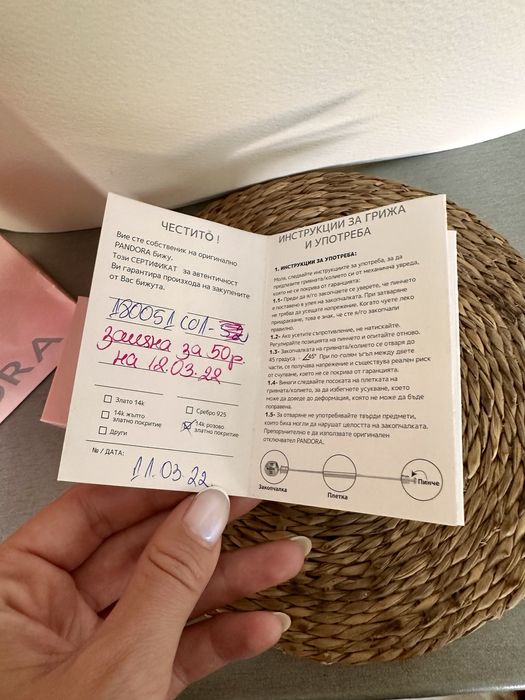 ЧЕСТИТО !
Вие сте собственик на оригинално
PANDORA бижу.
Този СЕРТИФИКАТ за автентичност
Ви гарантира произхода на закупените
от Вас бижута.
180051 C01-
замяна за 50р
на 12.03.22
Злато 14k
Сребро 925
14k жълто
златно покритие
14k розово
златно покритие
Други
№ / ДАТА:
11.03.22
ИНСТРУКЦИИ ЗА ГРИЖА
И УПОТРЕБА
1. ИНСТРУКЦИИ ЗА УПОТРЕБА:
Моля, следвайте инструкциите за употреба, за да
предпазите гривната/колието си от механична увреда,
която не се покрива от гаранцията:
1.1- Преди да я/го закопчаете се уверете, че пинчето
е поставено в улея на закопчалката. При затваряне
не трябва да усещате напрежение. Когато чуете леко
прищракване, това е знак, че сте я/го закопчали
правилно.
1.2- Ако усетите съпротивление, не натискайте.
Регулирайте позицията на пинчето и опитайте отново.
1.3- Закопчалката на гривната/колието се отваря до
45 градуса - 45° При по голям ъгъл между двете
части, се получава напрежение и съществува реален риск
от счупване, което не се покрива от гаранцията.
1.4- Винаги следвайте посоката на плетката на
гривната/колието, за да избегнете усукване, което
може да доведе до деформация, която не може да бъде
поправена.
1.5- За отваряне не употребявайте твърди предмети,
които биха могли да нарушат целостта на закопчалката.
Препоръчително е да използвате оригинален
отключвател PANDORA.
Закопчалка
Плетка
Пинче
ORA